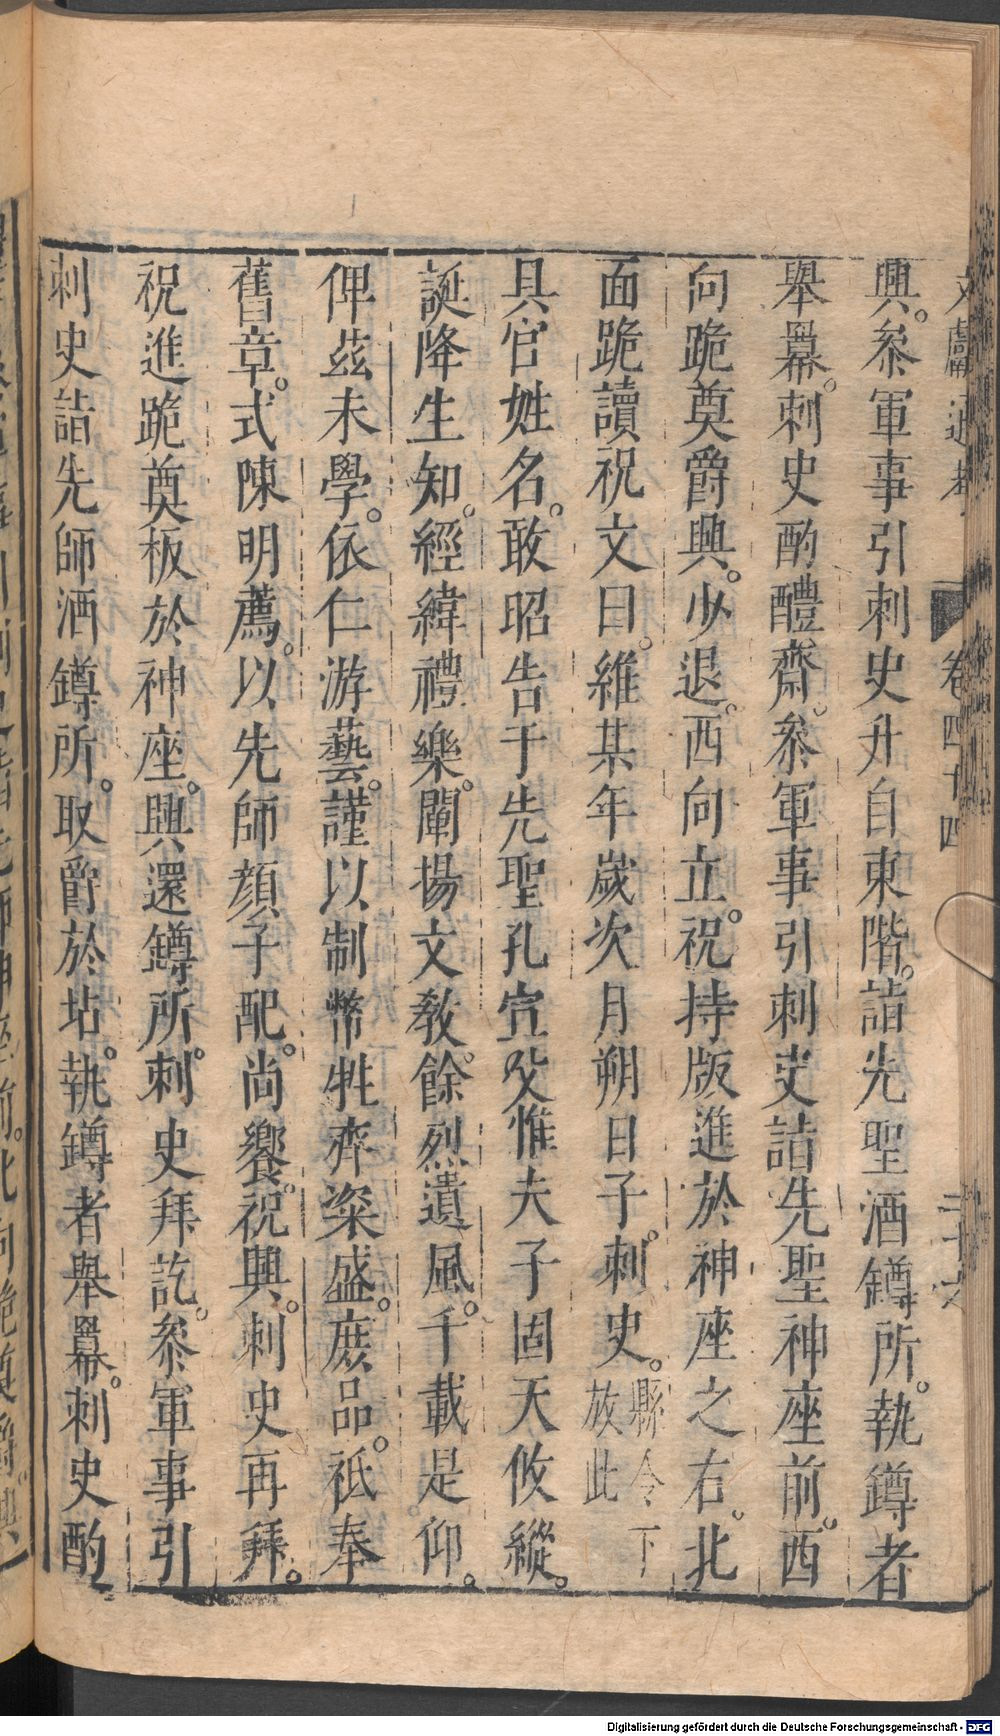 文獻通考 卷四十四 二十六
興。叅軍事引刺史升自東階。詣先聖酒罇所。執罇者
舉羃。刺史酌醴齋。叅軍事引刺史詣先聖神座前。西
向跪奠爵興。少退。西向立。祝持版進於神座之右。北
面跪讀祝文曰。維某年歲次月朔日子。刺史。縣令下放此
具官姓名。敢昭告于先聖孔宣父惟夫子固天攸縱。
誕降生知。經緯禮樂。闡揚文教。餘烈遺風。千載是仰。
俾茲未學。依仁游藝。謹以制幣牲齊粢盛。庶品。祇奉
舊章。式陳明薦。以先師顏子配。尚饗。祝興。刺史再拜。
祝進跪奠板於神座。興還罇所。刺史拜訖。叅軍事引
刺史詣先師酒罇所。取爵於坫。執罇者舉羃。刺史酌
Digitalisierung gefördert durch die Deutsche Forschungsgemeinschaft - DFG